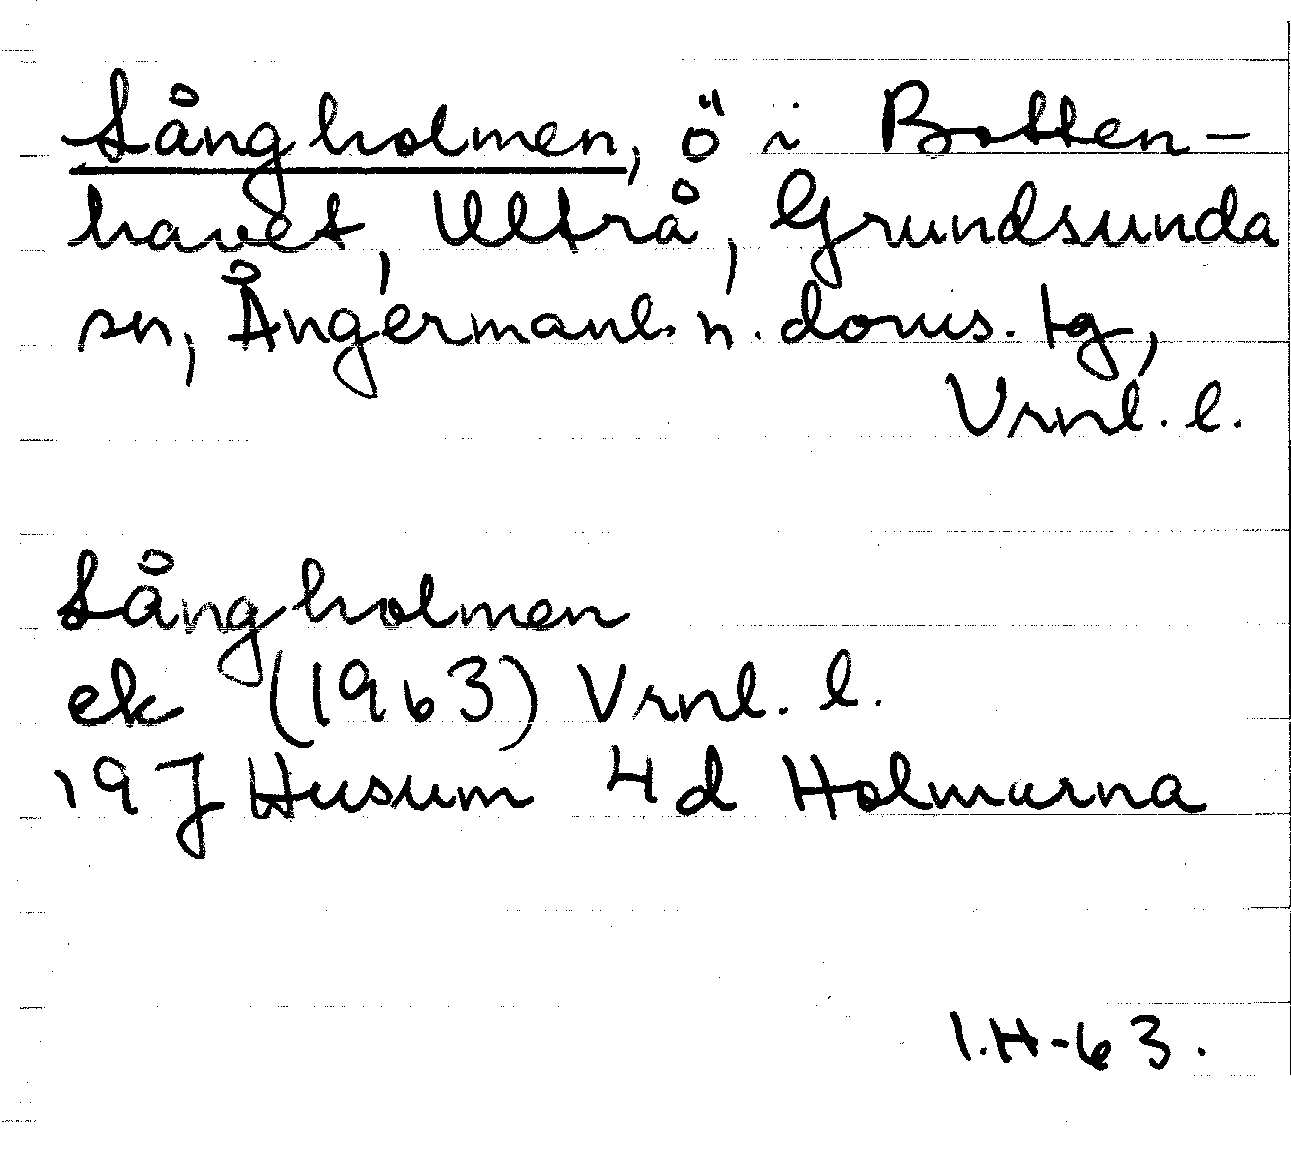 Långholmen, ö i Botten-
havet, Ultrå, Grundsunda
sn, Ångermanl. n. doms. tg,
Vrnl. l.
Långholmen
ek (1963) Vrnl. l.
19 J Husum 4d Holmarna
I.H-63.